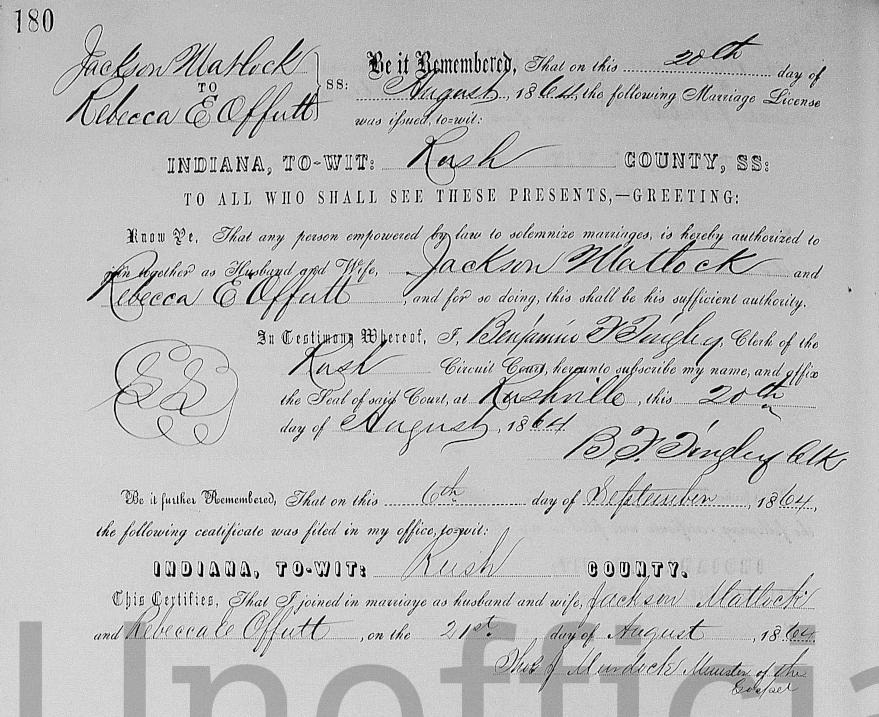 180
Jackson Matlock
TO
Rebecca E Offutt
SS:
Be it Remembered, That on this 20th day of
August, 1864, the following Marriage License
was issued, to-wit:
INDIANA, TO-WIT: Rush COUNTY, SS:
TO ALL WHO SHALL SEE THESE PRESENTS,—GREETING:
Know Ye, That any person empowered by law to solemnize marriages, is hereby authorized to
join together as Husband and Wife, Jackson Matlock and
Rebecca E Offutt, and for so doing, this shall be his sufficient authority.
In Testimony Whereof, I, Benjamin F Tingley Clerk of the
Rush Circuit Court, hereunto subscribe my name, and affix
the Seal of said Court, at Rushville, this 20th
day of August, 1864
B. F. Tingley Clk
Be it further Remembered, That on this 6th day of September, 1864,
the following ceatificate was filed in my office, to-wit:
INDIANA, TO-WIT: Rush COUNTY.
This Certifies, That I joined in marriaye as husband and wife, Jackson Matlock
and Rebecca E Offutt, on the 21st day of August, 1864
Thos J Murdock Minister of the
Gospel
Unofficia